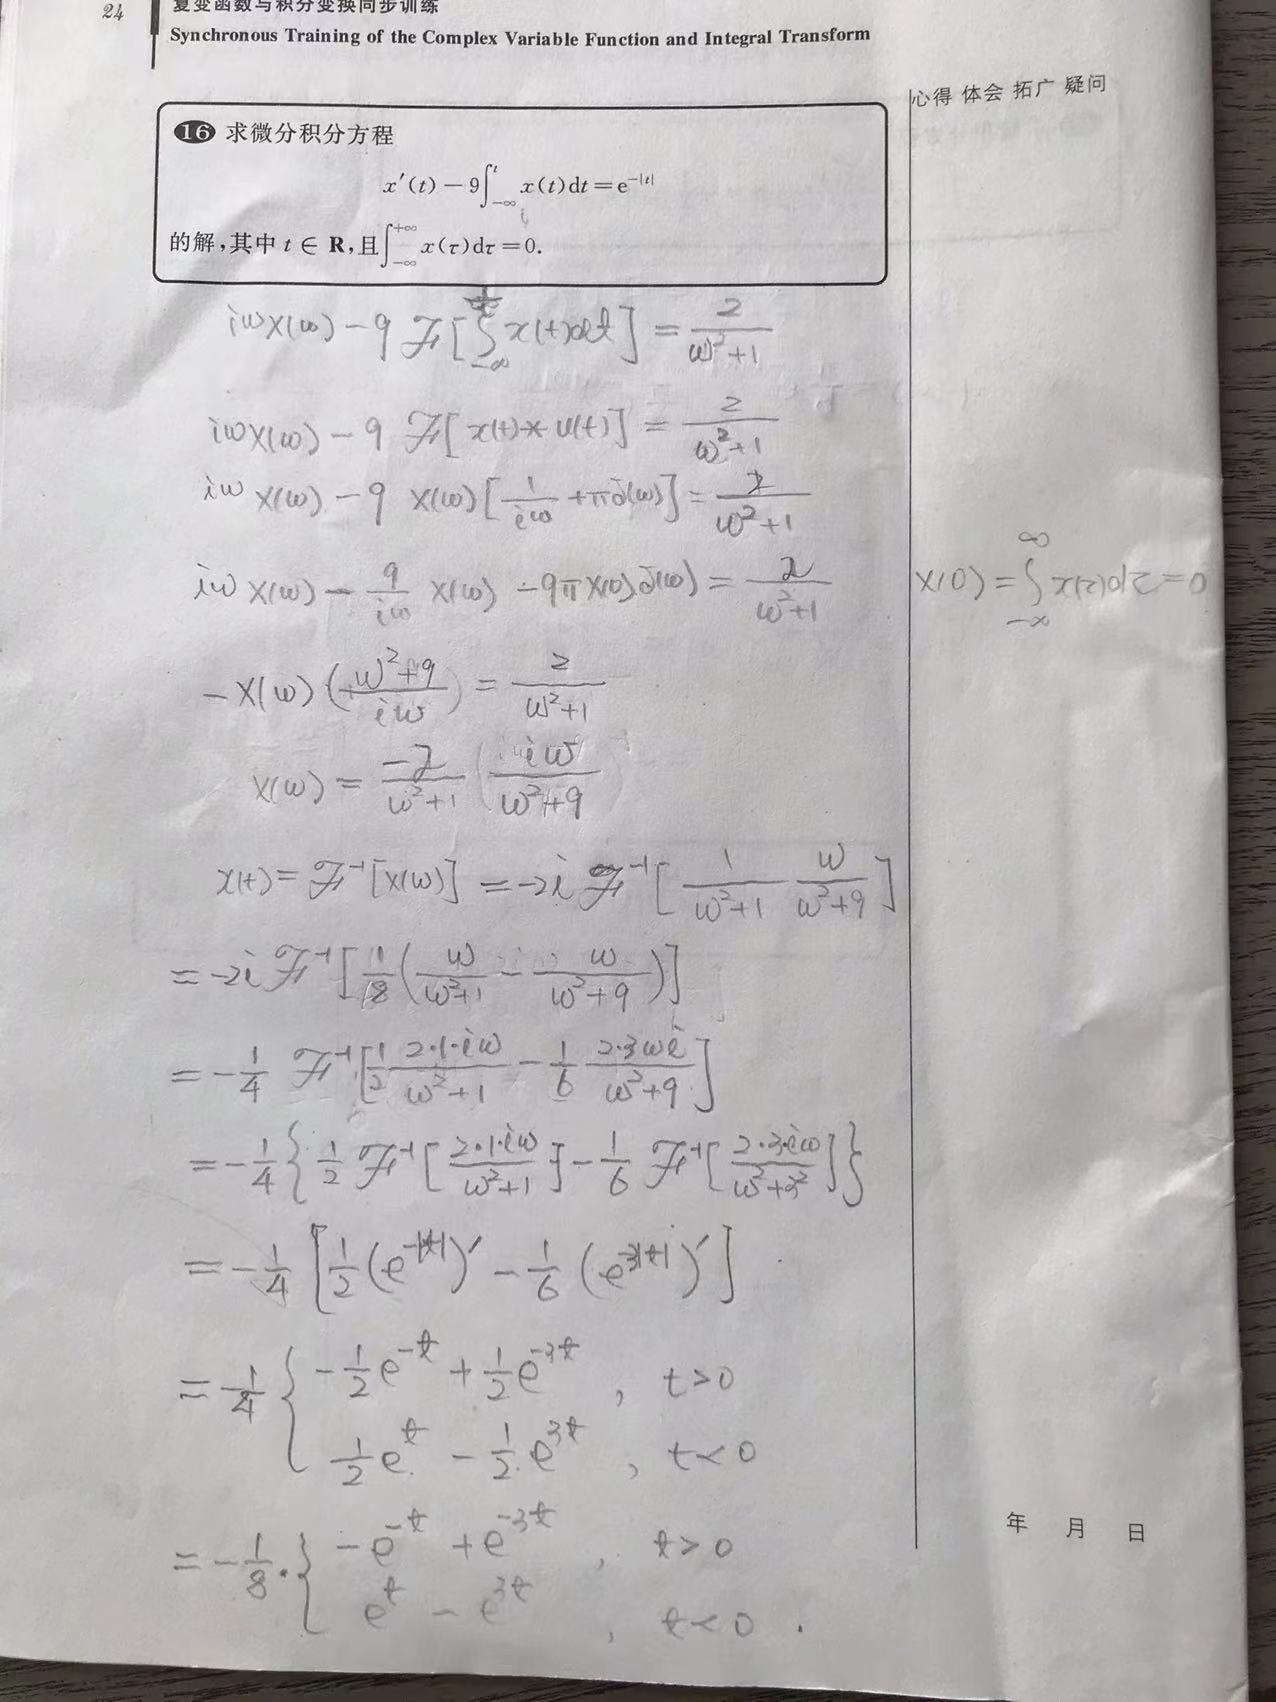 24
复变函数与积分变换同步训练
Synchronous Training of the Complex Variable Function and Integral Transform
心得 体会 拓广 疑问
16 求微分积分方程
x′(t) − 9∫_{−∞}^{t} x(t)dt = e^{−|t|}
的解,其中 t ∈ R,且∫_{−∞}^{+∞} x(τ)dτ = 0.
iωX(ω) − 9 ℱ[∫_{−∞}^{t} x(t)dt] = 2/(ω²+1)
iωX(ω) − 9 ℱ[x(t)*u(t)] = 2/(ω²+1)
iωX(ω) − 9 X(ω)[1/(iω) + πδ(ω)] = 2/(ω²+1)
iωX(ω) − 9/(iω) X(ω) − 9πX(0)δ(ω) = 2/(ω²+1)
X(0) = ∫_{−∞}^{∞} x(τ)dτ = 0
−X(ω)((ω²+9)/(iω)) = 2/(ω²+1)
X(ω) = −2/(ω²+1) (iω/(ω²+9))
x(t) = ℱ⁻¹[X(ω)] = −2i ℱ⁻¹[1/(ω²+1) ω/(ω²+9)]
= −2i ℱ⁻¹[1/8(ω/(ω²+1) − ω/(ω²+9))]
= −1/4 ℱ⁻¹[1/2 2·1·iω/(ω²+1) − 1/6 2·3ωi/(ω²+9)]
= −1/4{1/2 ℱ⁻¹[2·1·iω/(ω²+1)] − 1/6 ℱ⁻¹[2·3·iω/(ω²+3²)]}
= −1/4[1/2(e^{−|t|})′ − 1/6(e^{−3|t|})′]
= −1/4 { −1/2 e^{−t} + 1/2 e^{−3t} , t>0
1/2 e^{t} − 1/2 e^{3t} , t<0
= −1/8 · { −e^{−t} + e^{−3t} , t>0
e^{t} − e^{3t} , t<0 .
年 月 日